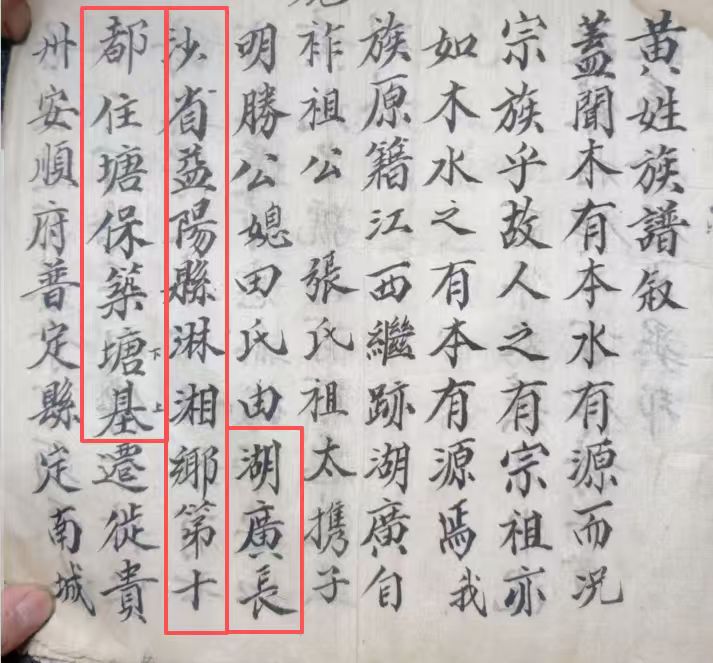 黄姓族譜叙
蓋聞木有本水有源而况
宗族乎故人之有宗祖亦
如木水之有本有源焉我
族原籍江西繼跡湖廣自
祚祖公 張氏祖太携子
明勝公媳田氏由湖廣長
沙省益陽縣淋湘鄉第十
都住塘保築塘下基上遷徙貴
州安順府普定縣定南城